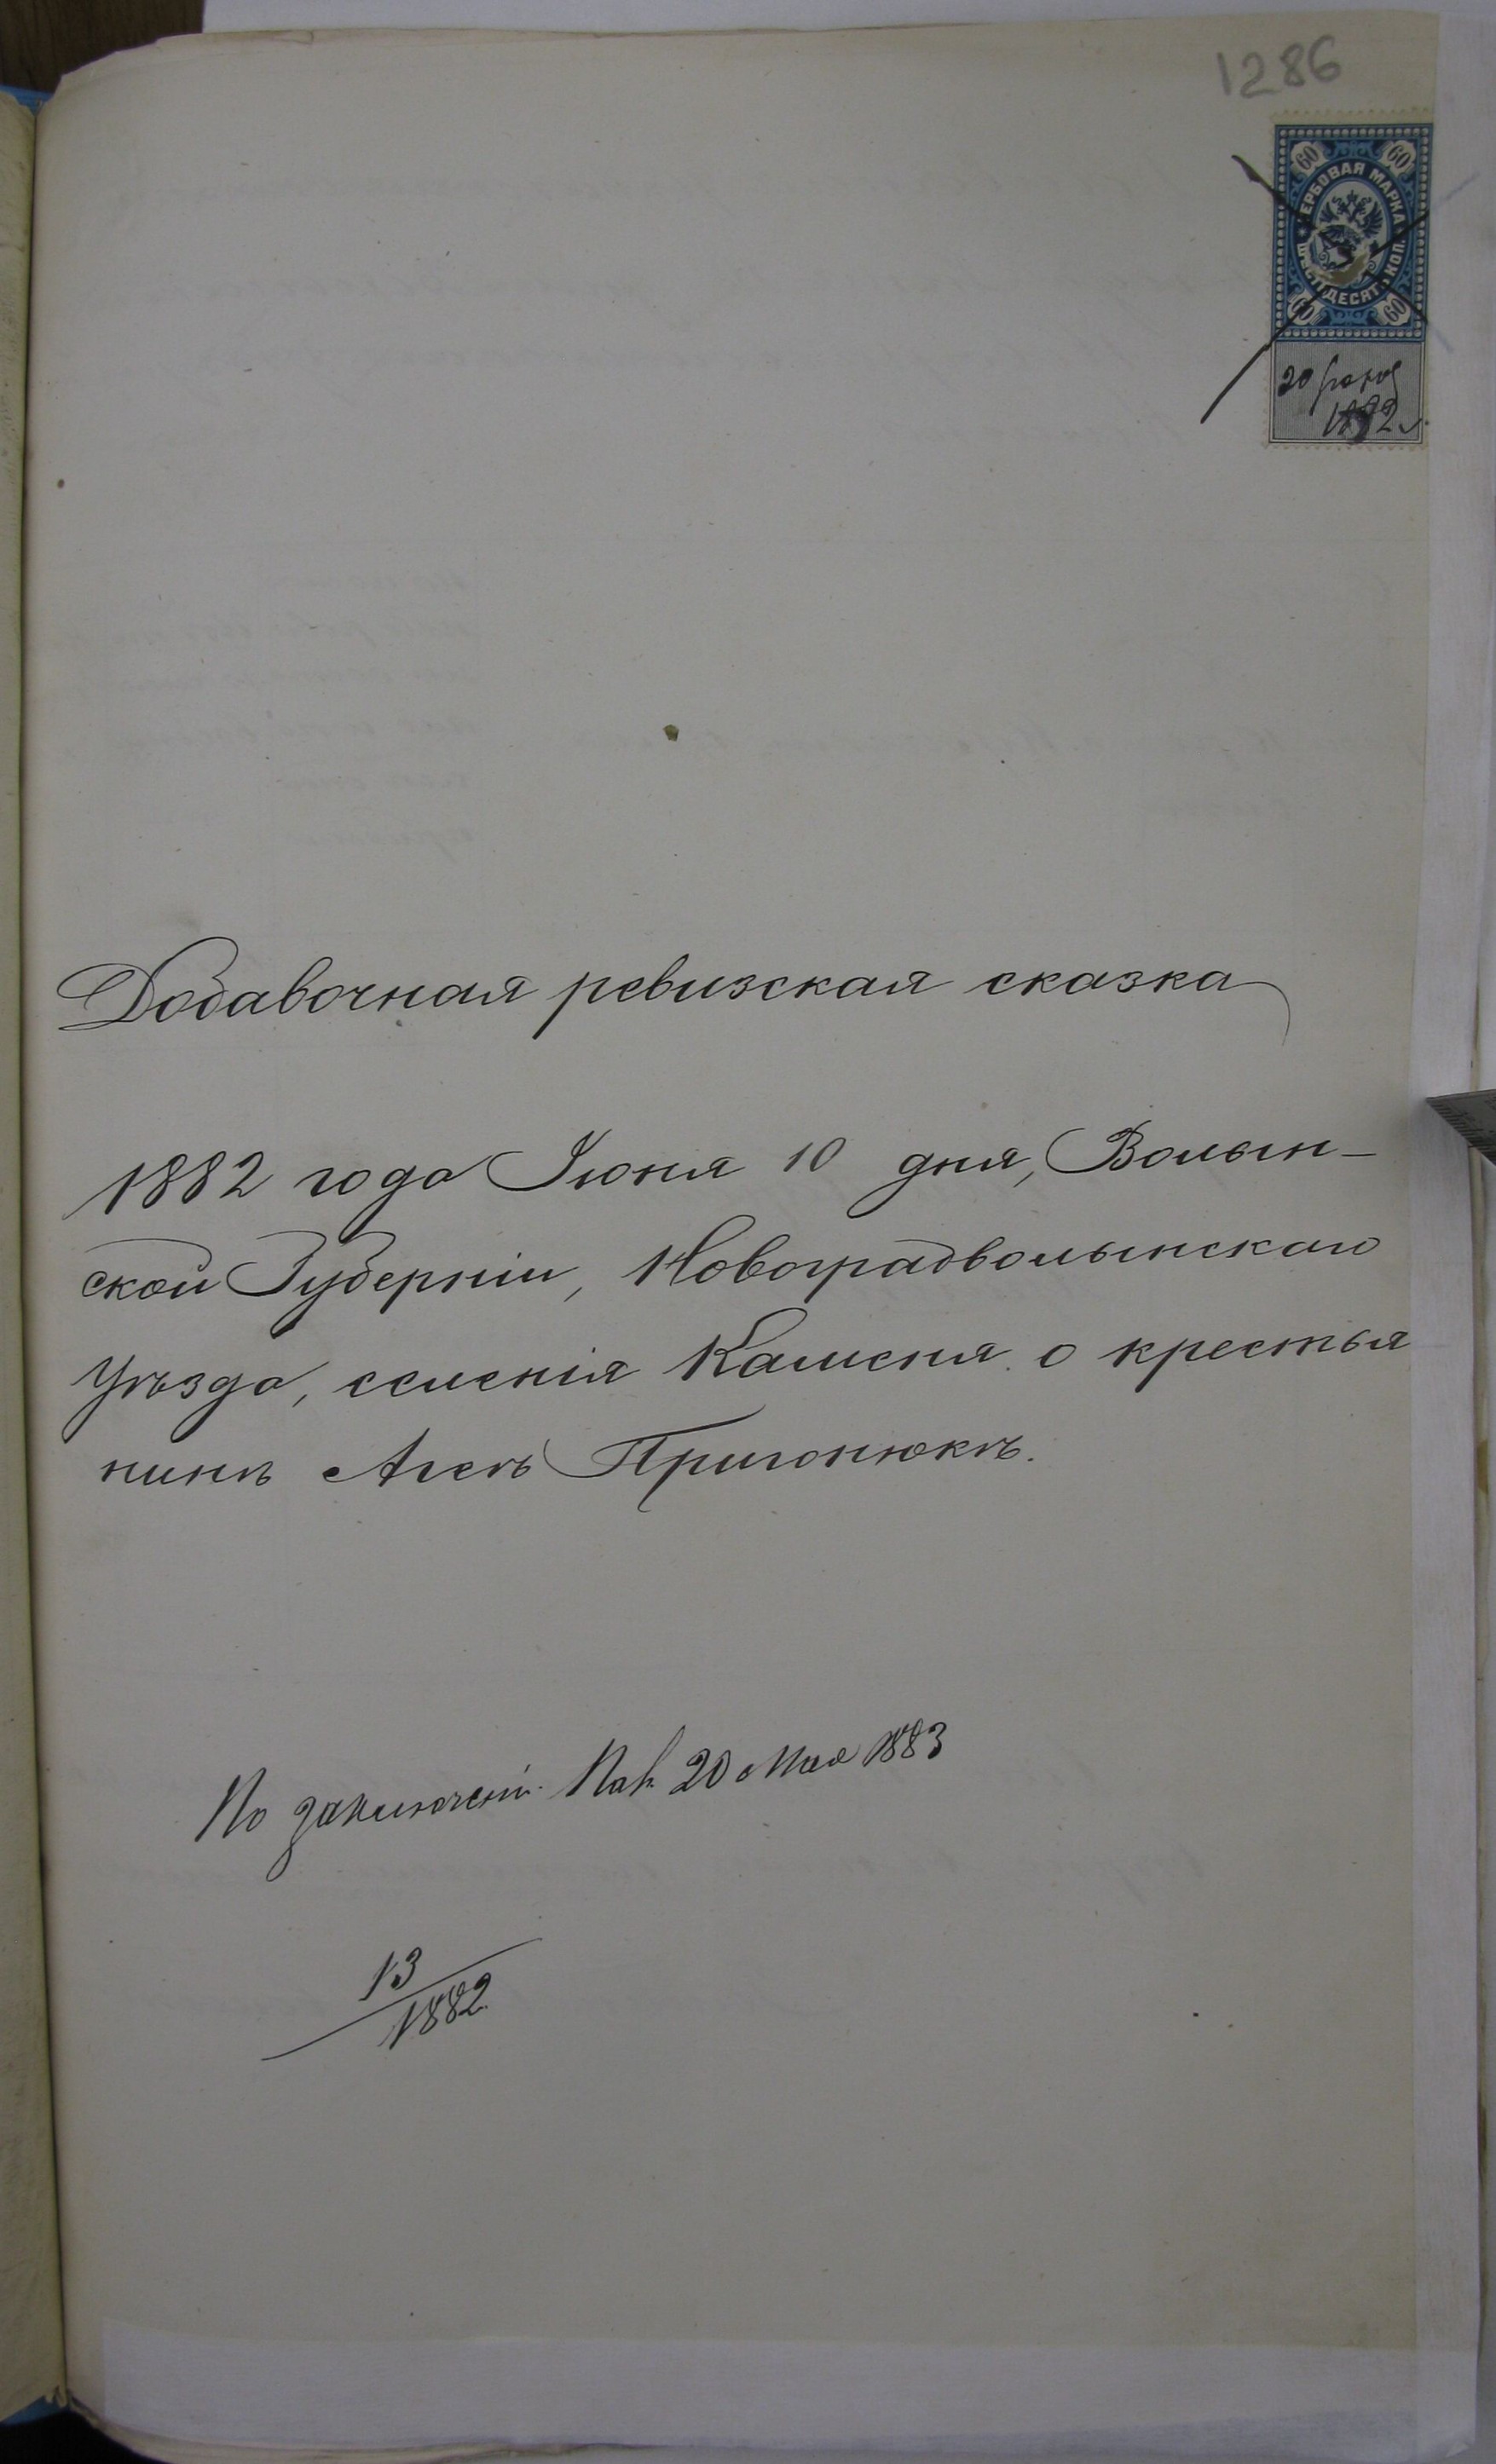 1286
60 60
ГЕРБОВАЯ МАРКА
ШЕСТЬДЕСЯТЪ КОП.
60 60
20
1882 г.
Добавочная ревизская сказка
1882 года Іюня 10 дня, Волын-
ской Губерніи, Новоградволынскаго
Уѣзда, селенія Каменя о крестья
нинѣ Агеѣ Пригонюкѣ.
По заключенію 20 Мая 1883
13
1882